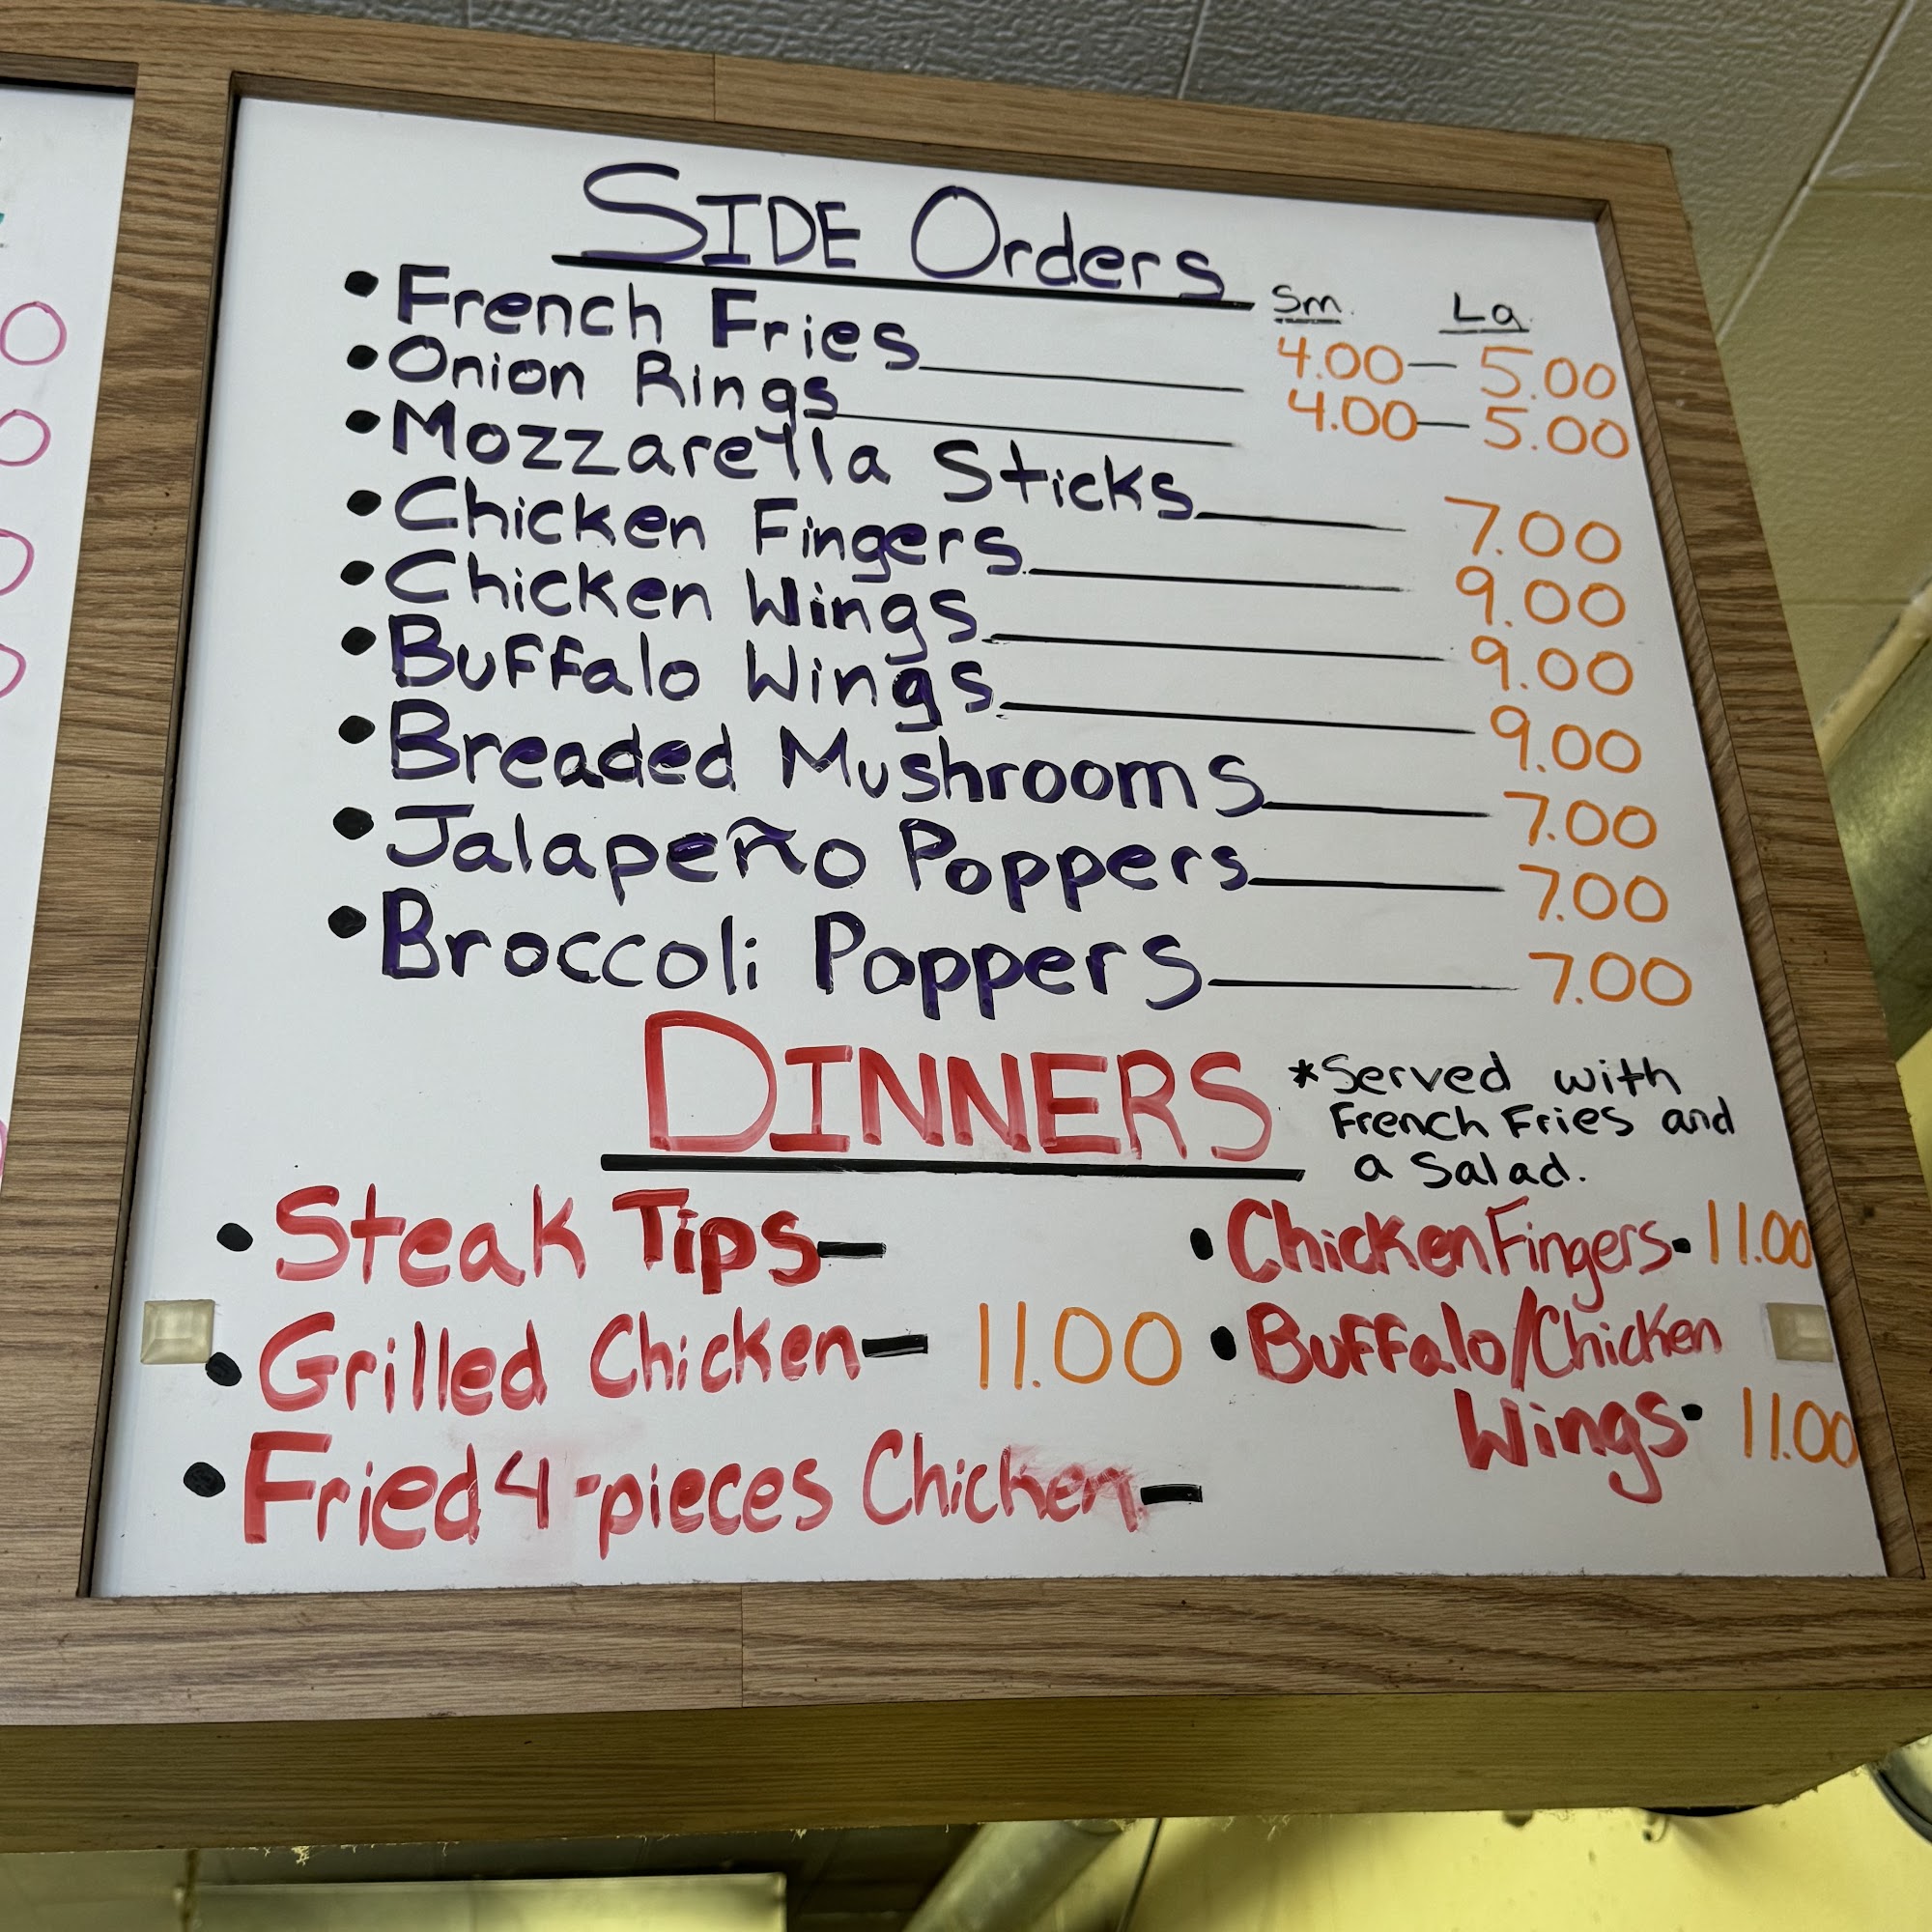 SIDE Orders
Sm. La.
• French Fries 4.00 — 5.00
• Onion Rings 4.00 — 5.00
• Mozzarella Sticks 7.00
• Chicken Fingers 9.00
• Chicken Wings 9.00
• Buffalo Wings 9.00
• Breaded Mushrooms 7.00
• Jalapeño Poppers 7.00
• Broccoli Poppers 7.00
DINNERS
*Served with
French Fries and
a Salad.
• Steak Tips-
• Grilled Chicken- 11.00
• Fried 4-pieces Chicken-
• Chicken Fingers• 11.00
• Buffalo/Chicken
Wings• 11.00